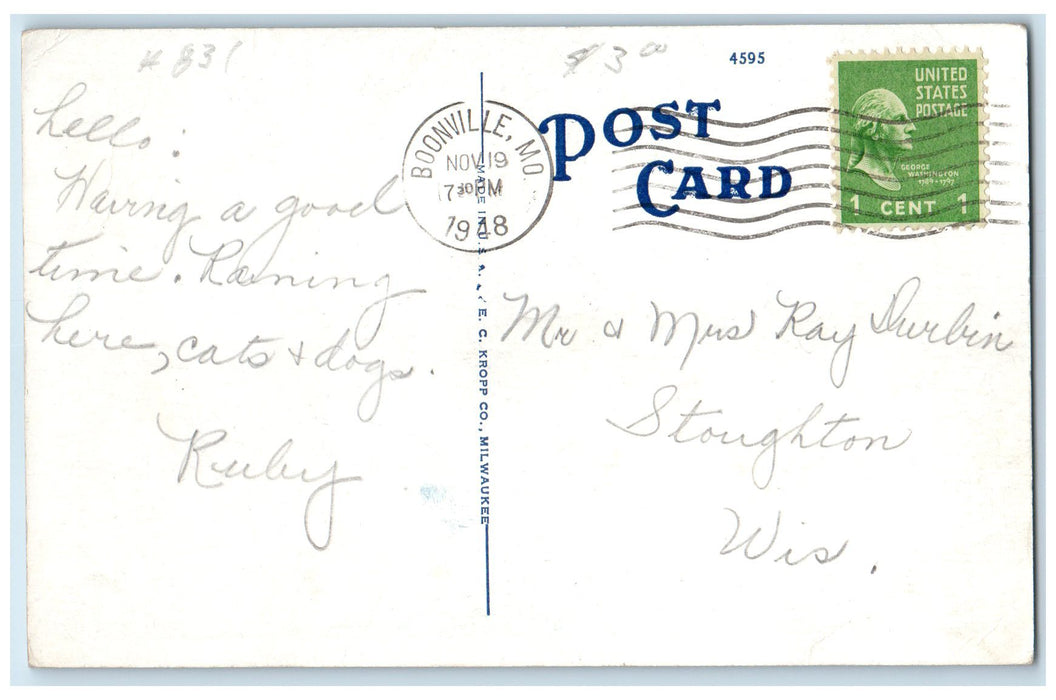 # 831
$3 00
4595
hello:
Having a good
time. Raining
here, cats & dogs.
Ruby
BOONVILLE, MO
NOV 19
7 30 M
1948
MADE IN U.S.A. E. C. KROPP CO., MILWAUKEE
POST
CARD
UNITED
STATES
POSTAGE
GEORGE
WASHINGTON
1789-1797
1 CENT 1
Mr & Mrs Ray Durbin
Stoughton
Wis.